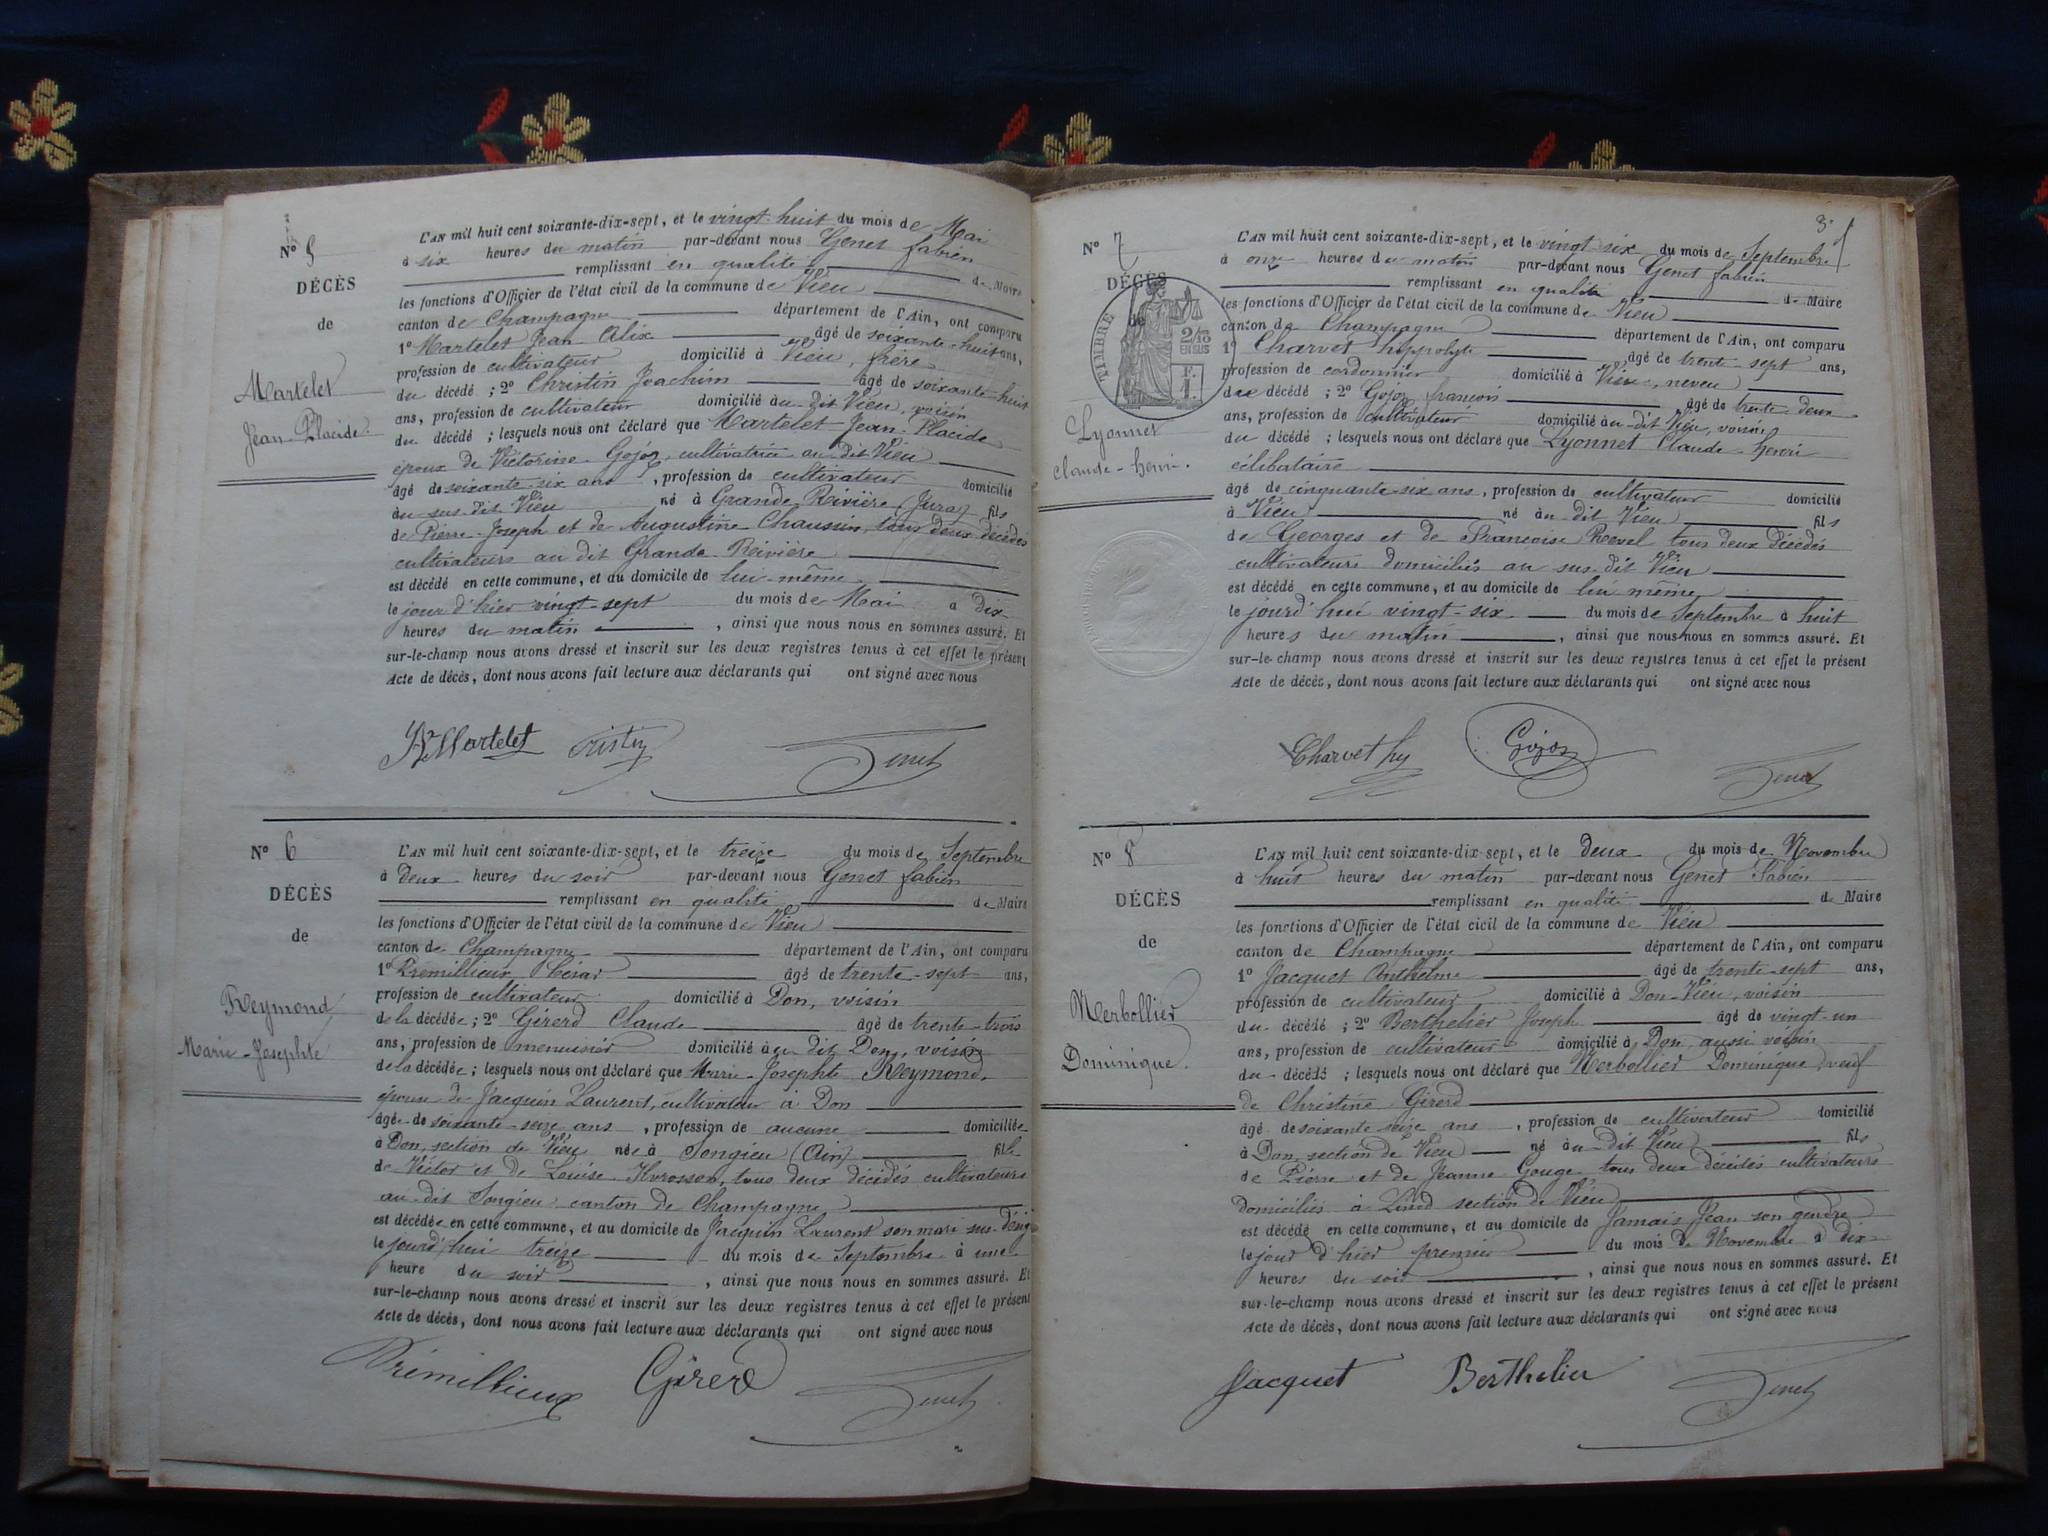 Nº 5
DÉCÈS
de
Martelet
Jean-Placide
L'AN mil huit cent soixante-dix-sept, et le vingt-huit du mois de Mai
à six heures du matin par-devant nous Genet fabien
remplissant en qualité de Maire
les fonctions d'Officier de l'état civil de la commune de Vieu
canton de Champagne département de l'Ain, ont comparu
1º Martelet Jean Alix âgé de soixante-huit ans,
profession de cultivateur domicilié à Vieu, frère
du décédé ; 2º Christin Joachim âgé de soixante-huit
ans, profession de cultivateur domicilié au-dit Vieu, voisin
du décédé ; lesquels nous ont déclaré que Martelet-Jean-Placide
époux de Victorine Gojoz, cultivatrice au-dit Vieu
âgé de soixante-six ans, profession de cultivateur domicilié
au sus-dit Vieu né à Grande Rivière (Jura) fils
de Pierre-Joseph et de Augustine Chaussin, tous deux décédés
cultivateurs au dit Grande Rivière
est décédé en cette commune, et au domicile de lui-même
le jour d'hier vingt-sept du mois de Mai à dix
heures du matin, ainsi que nous nous en sommes assuré. Et
sur-le-champ nous avons dressé et inscrit sur les deux registres tenus à cet effet le présent
Acte de décès, dont nous avons fait lecture aux déclarants qui ont signé avec nous
Martelet Cristin Genet
Nº 6
DÉCÈS
de
Reymond
Marie-Josephte
L'AN mil huit cent soixante-dix-sept, et le treize du mois de Septembre
à deux heures du soir par-devant nous Genet fabien
remplissant en qualité de Maire
les fonctions d'Officier de l'état civil de la commune de Vieu
canton de Champagne département de l'Ain, ont comparu
1º Premillieux César âgé de trente-sept ans,
profession de cultivateur domicilié à Don, voisin
de la décédée ; 2º Gérerd Claude âgé de trente-trois
ans, profession de menuisier domicilié au dit Don, voisin
de la décédée ; lesquels nous ont déclaré que Marie-Josephte Reymond,
épouse de Jacquin Laurent, cultivateur à Don
âgée de soixante-seize ans, profession de aucune domiciliée
à Don, section de Vieu née à Songieu (Ain) fille
de Victor et de Louise, tous deux décédés cultivateurs
au-dit Songieu canton de Champagne
est décédée en cette commune, et au domicile de Jacquin Laurent son mari sus-désig
le jourd'hui treize du mois de Septembre à une
heure du soir, ainsi que nous nous en sommes assuré. Et
sur-le-champ nous avons dressé et inscrit sur les deux registres tenus à cet effet le présent
Acte de décès, dont nous avons fait lecture aux déclarants qui ont signé avec nous
Prémillieux Gérerd Genet
3
Nº 7
DÉCÈS
de
TIMBRE
2/10
EN SUS
Lyonnet
Claude-henri.
L'AN mil huit cent soixante-dix-sept, et le vingt six du mois de Septembre
à onze heures du matin par-devant nous Genet fabien
remplissant en qualité de Maire
les fonctions d'Officier de l'état civil de la commune de Vieu
canton de Champagne département de l'Ain, ont comparu
1º Charvet hyppolyte âgé de trente-sept ans,
profession de cordonnier domicilié à Vieu, neveu
du décédé ; 2º Gojoz françois âgé de trente-deux
ans, profession de cultivateur domicilié au-dit Vieu, voisin
du décédé ; lesquels nous ont déclaré que Lyonnet Claude-henri
célibataire
âgé de cinquante-six ans, profession de cultivateur domicilié
à Vieu né au-dit Vieu fils
de Georges et de Françoise Revel tous deux décédés
cultivateurs domiciliés au sus-dit Vieu
est décédé en cette commune, et au domicile de lui même
le jourd'hui vingt-six du mois de Septembre à huit
heures du matin, ainsi que nous nous en sommes assuré. Et
sur-le-champ nous avons dressé et inscrit sur les deux registres tenus à cet effet le présent
Acte de décès, dont nous avons fait lecture aux déclarants qui ont signé avec nous
Charvet hy Gojoz Genet
Nº 8
DÉCÈS
de
Merbollier
Dominique.
L'AN mil huit cent soixante-dix-sept, et le deux du mois de Novembre
à huit heures du matin par-devant nous Genet Fabien
remplissant en qualité de Maire
les fonctions d'Officier de l'état civil de la commune de Vieu
canton de Champagne département de l'Ain, ont comparu
1º Jacquet Anthelme âgé de trente-sept ans,
profession de cultivateur domicilié à Don-Vieu, voisin
du décédé ; 2º Berthelier Joseph âgé de vingt-un
ans, profession de cultivateur domicilié à Don aussi voisin
du décédé ; lesquels nous ont déclaré que Merbollier Dominique, veuf
de Christine Gérerd
âgé de soixante seize ans, profession de cultivateur domicilié
à Don, section de Vieu né au-dit Vieu fils
de Pierre et de Jeanne Gouge tous deux décédés cultivateurs
domiciliés à section de Vieu
est décédé en cette commune, et au domicile de Jamais Jean son gendre
le jour d'hier premier du mois de Novembre à dix
heures du soir, ainsi que nous nous en sommes assuré. Et
sur-le-champ nous avons dressé et inscrit sur les deux registres tenus à cet effet le présent
Acte de décès, dont nous avons fait lecture aux déclarants qui ont signé avec nous
Jacquet Berthelier Genet